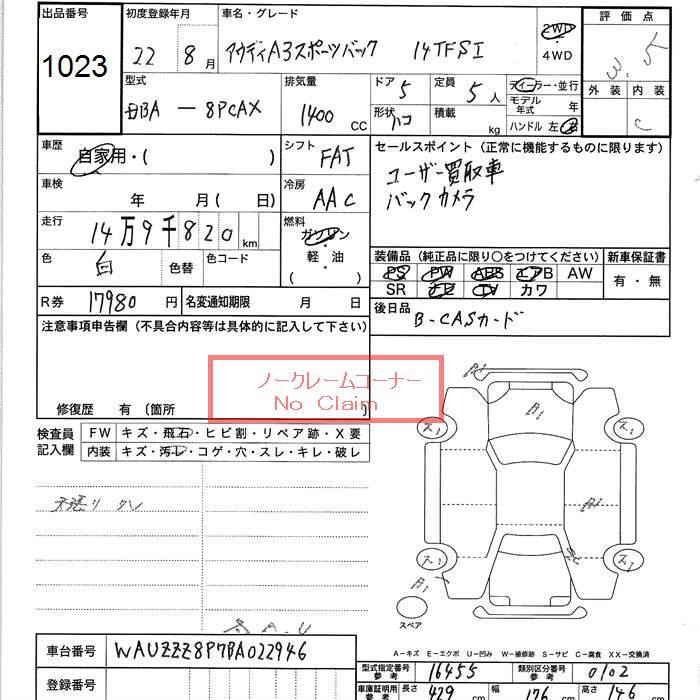 出品番号 初度登録年月 車名・グレード 評価点
1023 22 8月 アウディA3スポーツバック 14TFSI 2WD・4WD 3.5
型式 排気量 ドア 定員 ディーラー・並行 外装 内装
DBA - 8PCAX 1400 CC 5 5人 モデル年式 年 C
形状 ハコ 積載 kg ハンドル 左・右
車歴 自家用・( ) シフト FAT セールスポイント (正常に機能するものに限ります)
ユーザー買取車
車検 年 月( 日) 冷房 AAC バックカメラ
走行 14万9千820km 燃料 ガソリン・軽油・( )
色 白 色替 色コード 装備品 (純正品に限り○をつけてください) 新車保証書
PS PW ABS エアB AW 有・無
SR ナビ TV カワ
R券 17980円 名変通知期限 月 日 後日品 B-CASカード
注意事項申告欄 (不具合内容等は具体的に記入して下さい)
ノークレームコーナー
No Claim
修復歴 有 〔箇所 〕
検査員記入欄 FW キズ・飛石・ヒビ割・リペア跡・X要
内装 キズ・汚レ・コゲ・穴・スレ・キレ・破レ
天張り タレ
スペア
A-キズ E-エクボ U-凹み W-補修跡 S-サビ C-腐食 XX-交換済
車台番号 WAUZZZ8P7BA022946
型式指定番号参考 16455 類別区分番号参考 0102
登録番号 車庫証明用参考 長さ 429 cm 幅 176 cm 高さ 146